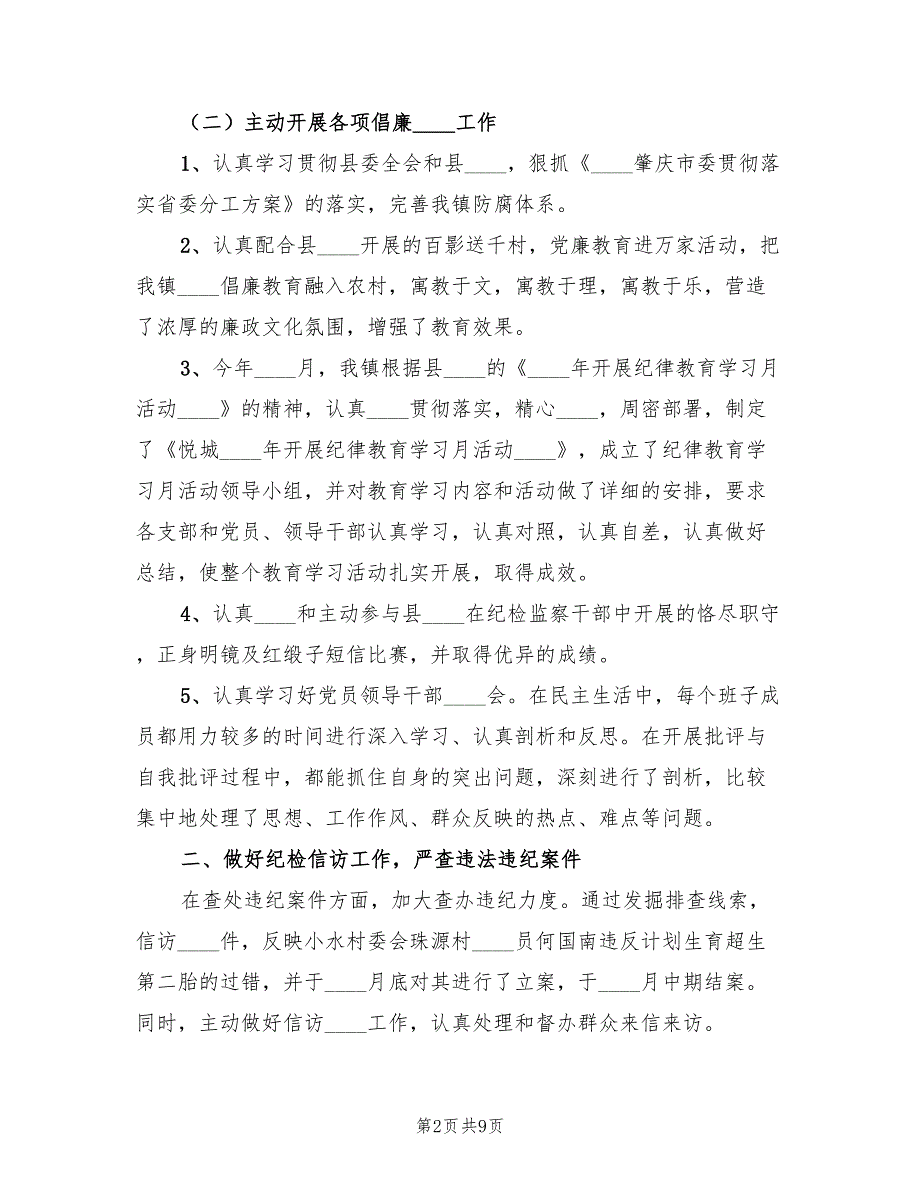 （二）主动开展各项倡廉____工作
1、认真学习贯彻县委全会和县____，狠抓《____肇庆市委贯彻落
实省委分工方案》的落实，完善我镇防腐体系。
2、认真配合县____开展的百影送千村，党廉教育进万家活动，把
我镇____倡廉教育融入农村，寓教于文，寓教于理，寓教于乐，营造
了浓厚的廉政文化氛围，增强了教育效果。
3、今年____月，我镇根据县____的《____年开展纪律教育学习月
活动____》的精神，认真____贯彻落实，精心____，周密部署，制定
了《悦城____年开展纪律教育学习月活动____》，成立了纪律教育学
习月活动领导小组，并对教育学习内容和活动做了详细的安排，要求
各支部和党员、领导干部认真学习，认真对照，认真自差，认真做好
总结，使整个教育学习活动扎实开展，取得成效。
4、认真____和主动参与县____在纪检监察干部中开展的恪尽职守
，正身明镜及红缎子短信比赛，并取得优异的成绩。
5、认真学习好党员领导干部____会。在民主生活中，每个班子成
员都用力较多的时间进行深入学习、认真剖析和反思。在开展批评与
自我批评过程中，都能抓住自身的突出问题，深刻进行了剖析，比较
集中地处理了思想、工作作风、群众反映的热点、难点等问题。
二、做好纪检信访工作，严查违法违纪案件
在查处违纪案件方面，加大查办违纪力度。通过发掘排查线索，
信访____件，反映小水村委会珠源村____员何国南违反计划生育超生
第二胎的过错，并于____月底对其进行了立案，于____月中期结案。
同时，主动做好信访____工作，认真处理和督办群众来信来访。
第2页 共9页